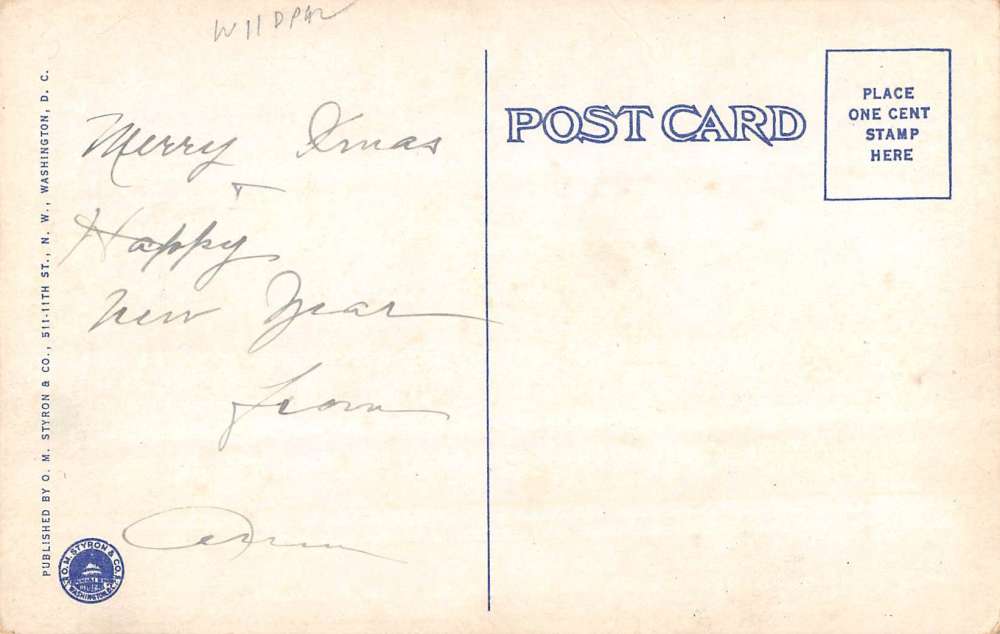 W11DPAL
PUBLISHED BY O. M. STYRON & CO., 511-11TH ST., N. W., WASHINGTON, D. C.
Merry Xmas
+
Happy
New Year
from
POST CARD
PLACE
ONE CENT
STAMP
HERE
O. M. STYRON & CO.
WASHINGTON, D.C.